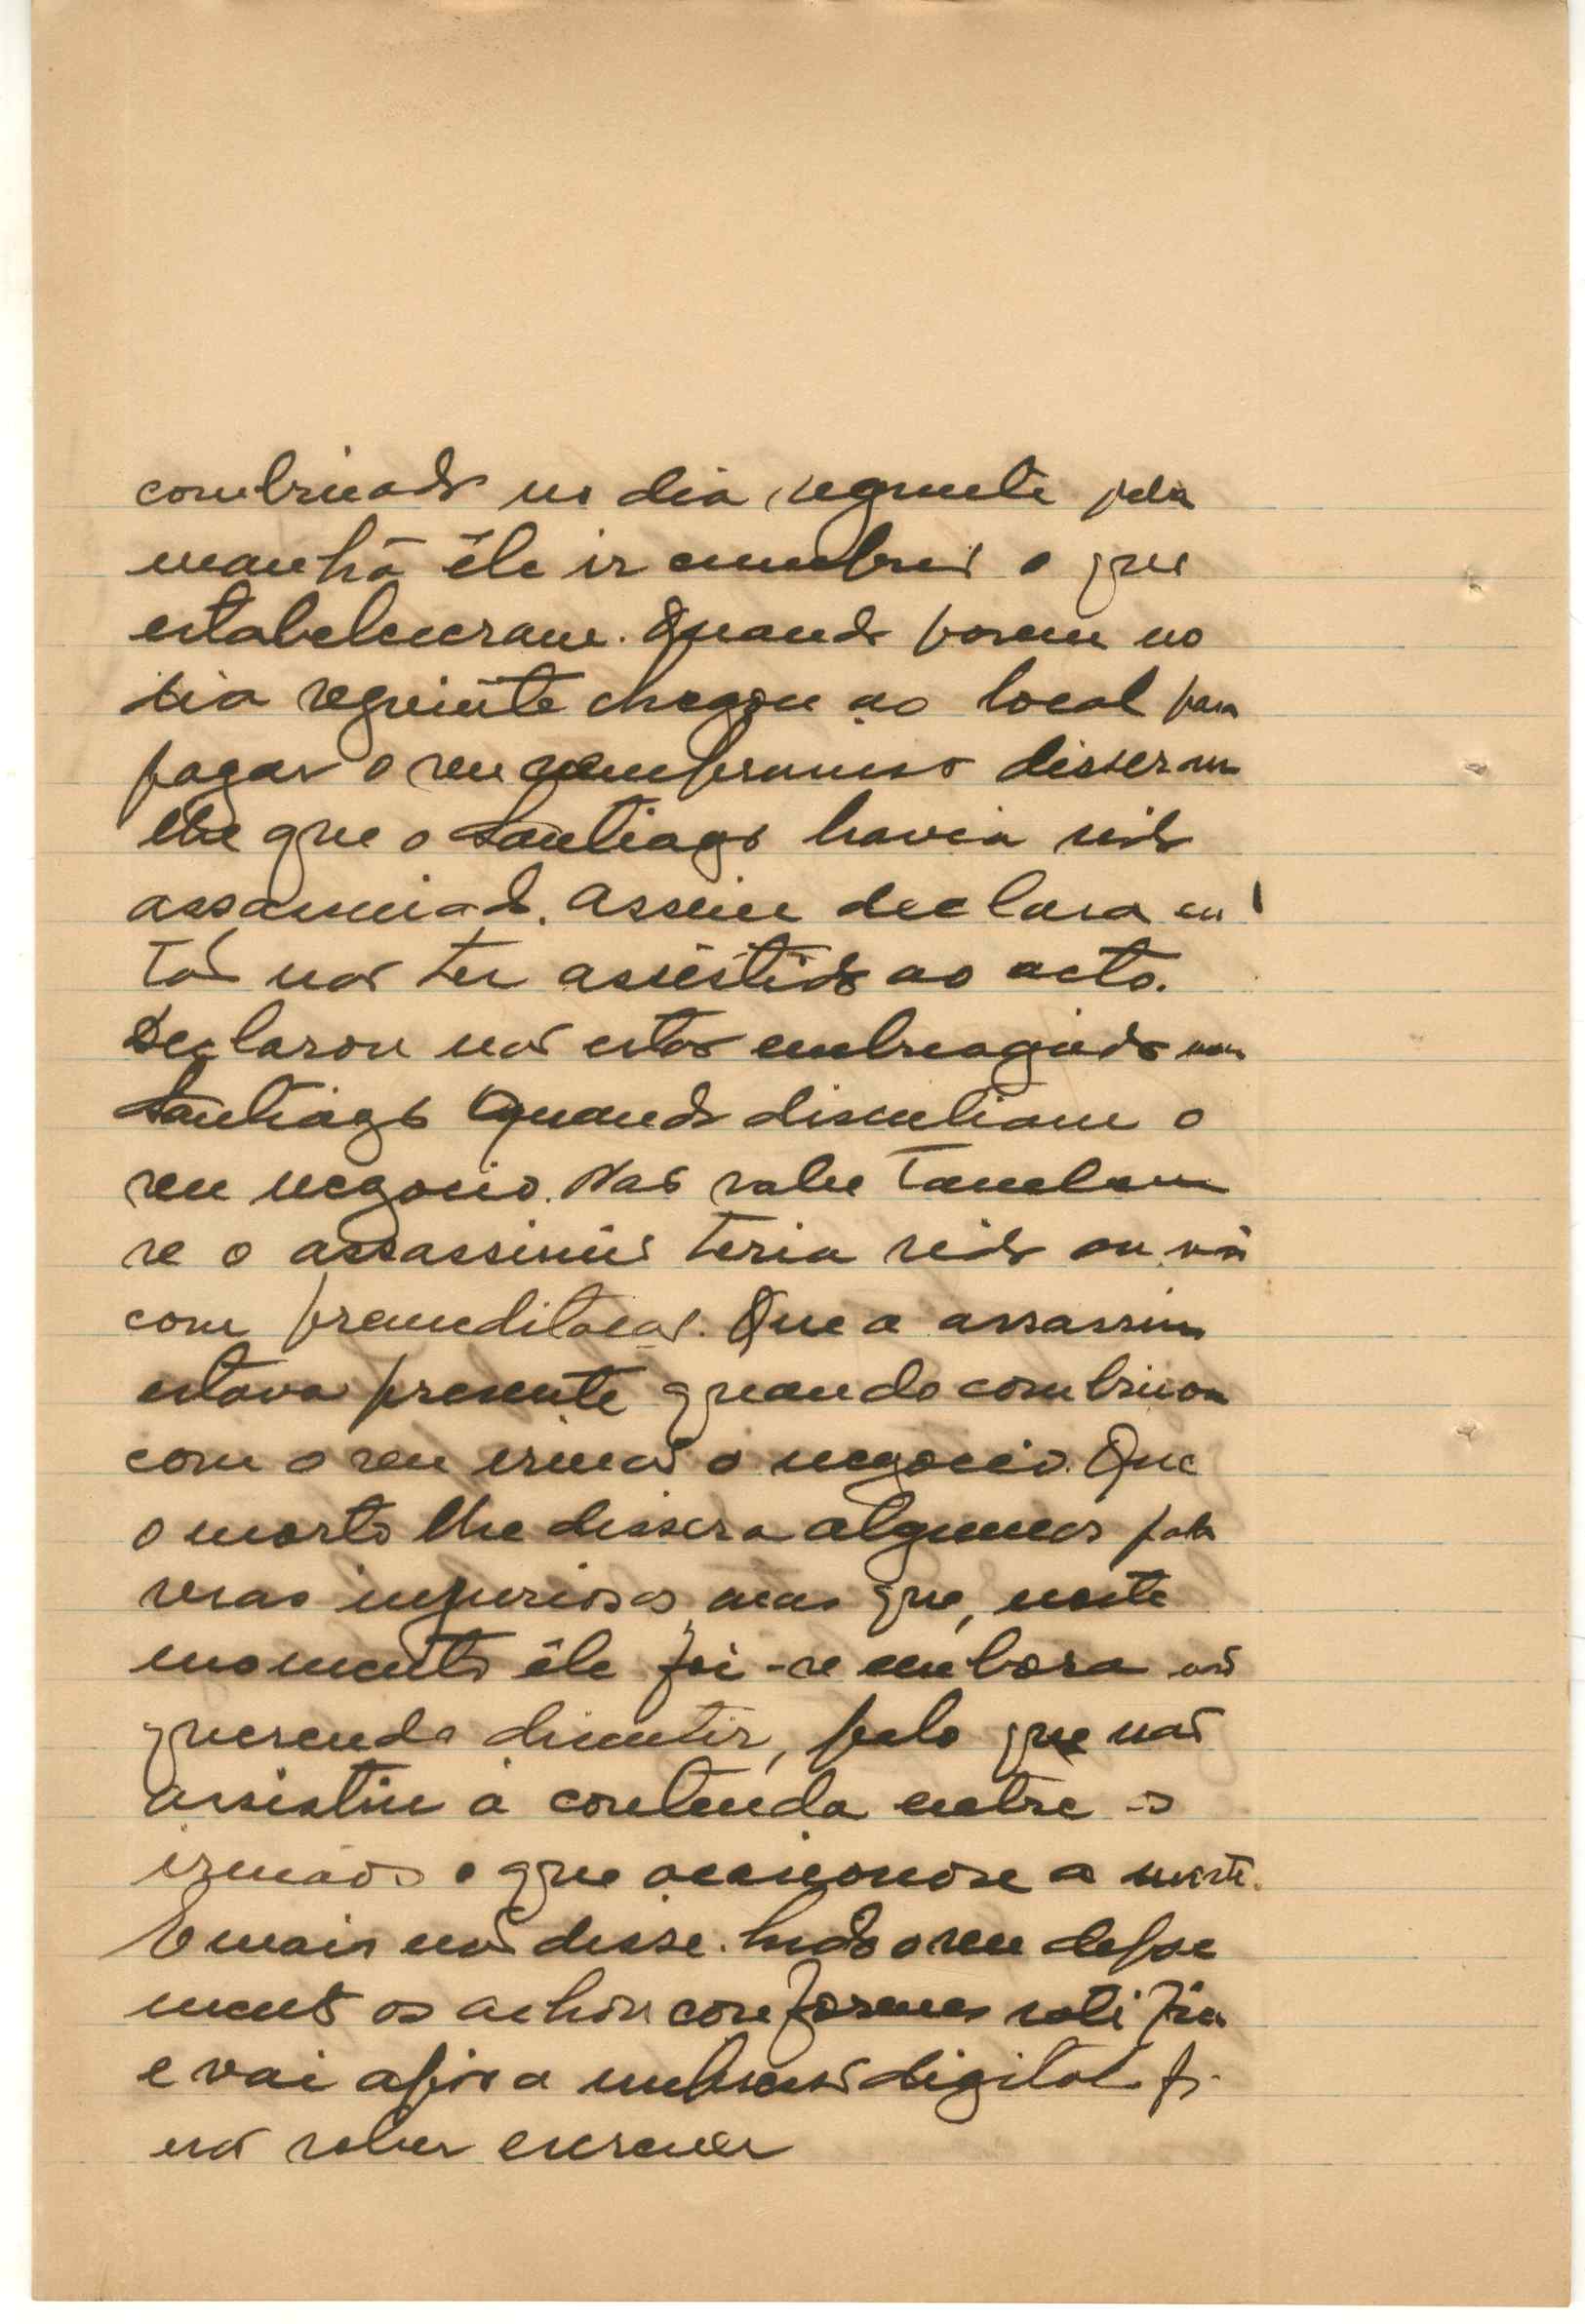 combinado no dia seguinte pela
manhã êle ir cumbrir o que
estabeleceram. Quando porem no
dia seguinte chegou ao local para
pagar o seu compromisso disseram
lhe que o Santiago havia sido
assassinado. Assim declara en
tão não ter assistido ao acto.
Declarou não estar embreagado nem
Santiago quando discutiam o
seu negocio. Não sabe tambem
se o assassinio teria sido ou não
com premeditação. Que a assassino
estava presente quando combinou
com o seu irmão o negocio. Que
o morto lhe dissera algumas pala
vras injuriosas, mas que, neste
momento êle foi-se embora não
querendo discutir, pelo que não
assistiu a contenda entre os
irmãos o que a morte.
E mais não disse. Lido o seu depoi
mento os achou conformes ratifica
e vai apôr a impressão digital p.
não saber escrever